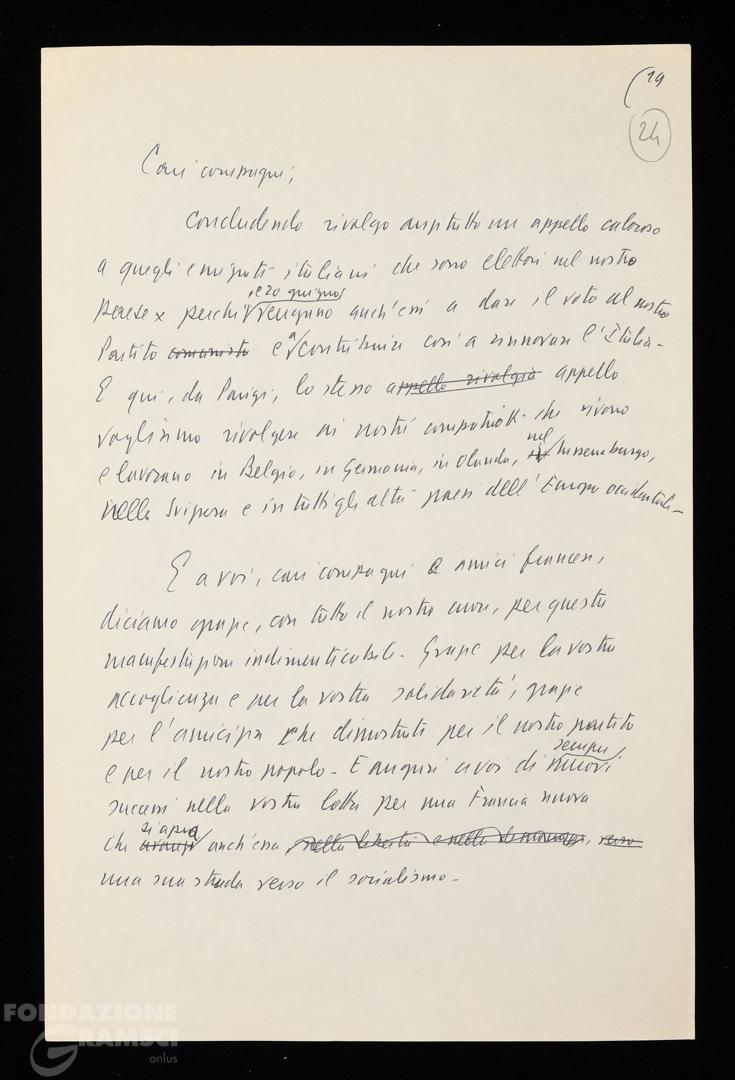 19
24
Cari compagni,
concludendo rivolgo anzitutto un appello caloroso
a quegli emigrati italiani che sono elettori nel nostro
Paese x perché il 20 giugno vengano anch'essi a dare il voto al nostro
Partito comunista e a contribuire così a rinnovare l'Italia.
E qui, da Parigi, lo stesso appello rivolgia appello
vogliamo rivolgere ai nostri compatrioti che vivono
e lavorano in Belgio, in Germania, in Olanda, nel Lussemburgo,
nella Svizzera e in tutti gli altri paesi dell'Europa occidentale.
E a voi, cari compagni e amici francesi,
diciamo grazie, con tutto il nostro cuore, per questa
manifestazione indimenticabile. Grazie per la vostra
accoglienza e per la vostra solidarietà, grazie
per l'amicizia che dimostrate per il nostro partito
e per il nostro popolo. E auguri a voi di sempre nuovi
successi nella vostra lotta per una Francia nuova
che si apra avanzi anch'essa, nella libertà e nella democrazia, verso
una sua strada verso il socialismo.
FONDAZIONE
GRAMSCI
onlus